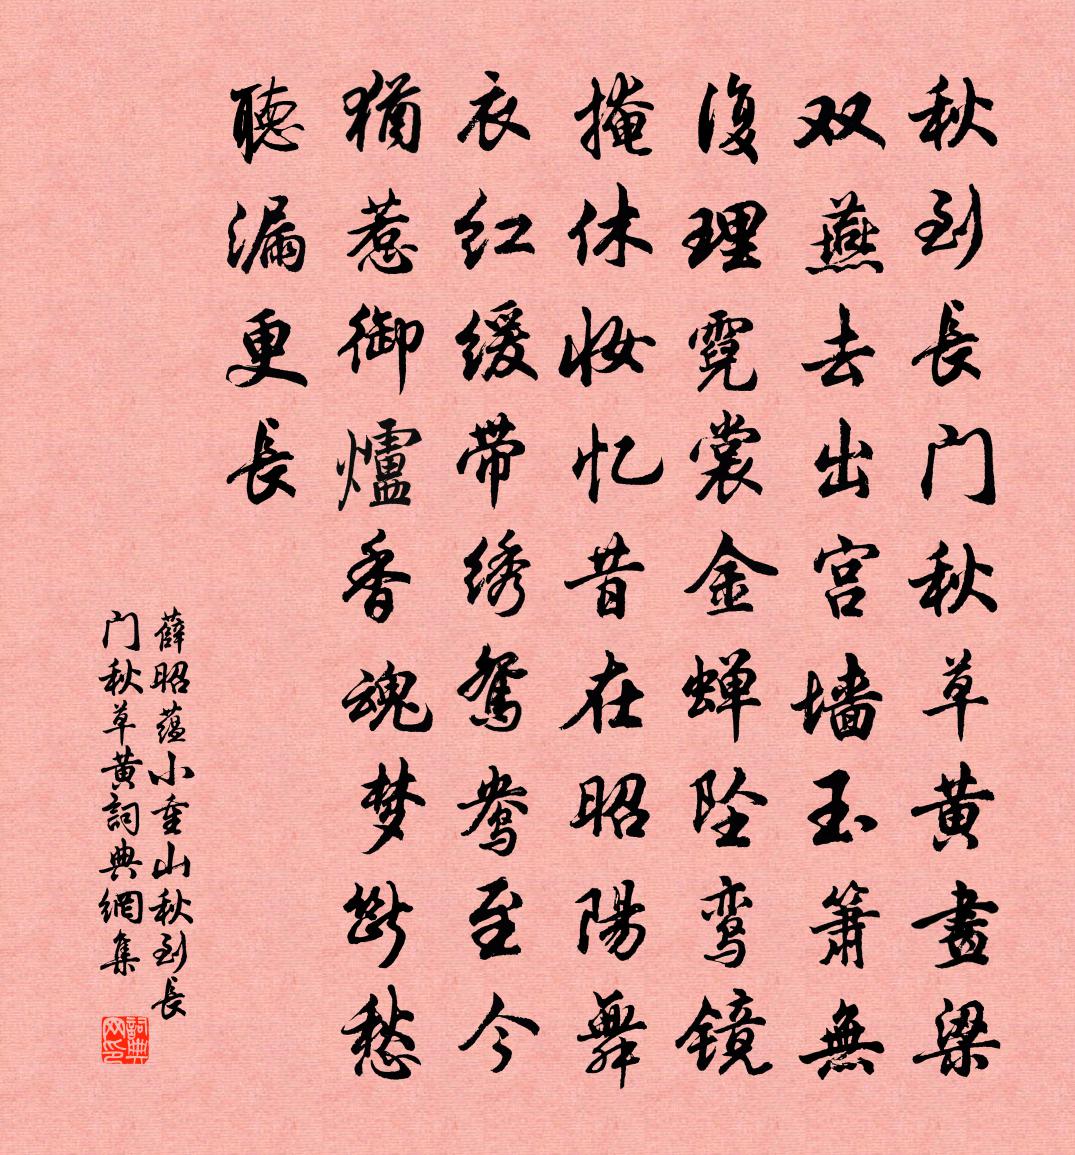 秋到長门秋草黄畫梁
双燕去出宫墙玉箫無
復理霓裳金蝉坠鸾镜
掩休妆忆昔在昭陽舞
衣红缓带绣鸳鸯至今
猶惹御爐香魂梦断愁
聽漏更長
薛昭蕴小重山秋到長
门秋草黄詞典網集
詞典
网印